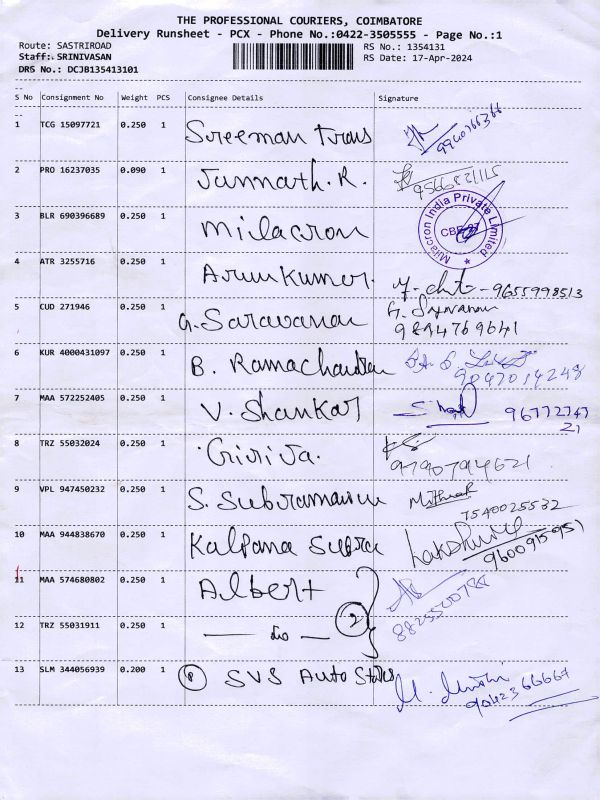 THE PROFESSIONAL COURIERS, COIMBATORE
Delivery Runsheet - PCX - Phone No.:0422-3505555 - Page No.:1
Route: SASTRIROAD
RS No.: 1354131
Staff: SRINIVASAN
RS Date: 17-Apr-2024
DRS No.: DCJB135413101
S No Consignment No Weight PCS Consignee Details Signature
1 TCG 15097721 0.250 1 Sreeman Trans 9940766366
2 PRO 16237035 0.090 1 Jannath. R. 9566521115
3 BLR 690396689 0.250 1 Milacron
Milacron India Private Limited
4 ATR 3255716 0.250 1 Arunkumar. 9655998513
5 CUD 271946 0.250 1 G. Saravanan G. Saravanan
9894769641
6 KUR 4000431097 0.250 1 B. Ramachandran 9047014248
7 MAA 572252405 0.250 1 V. Shankar 9677274721
8 TRZ 55032024 0.250 1 Girija. 9790794621
9 VPL 947450232 0.250 1 S. Subramanian 7540025532
10 MAA 944838670 0.250 1 Kalpana 9600915951
11 MAA 574680802 0.250 1 Albert 2
12 TRZ 55031911 0.250 1 — do —
13 SLM 344056939 0.200 1 SVS Auto 9042366667